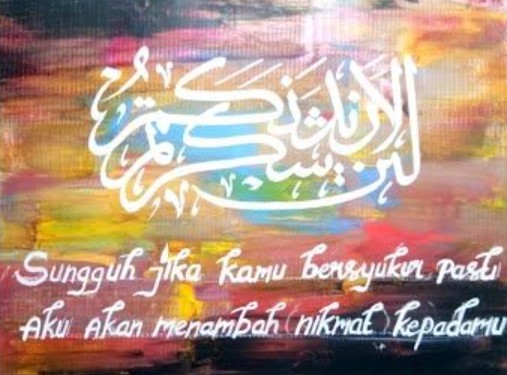 لئن شكرتم لأزيدنكم
Sungguh jika kamu bersyukur pasti
Aku akan menambah (nikmat) kepadamu